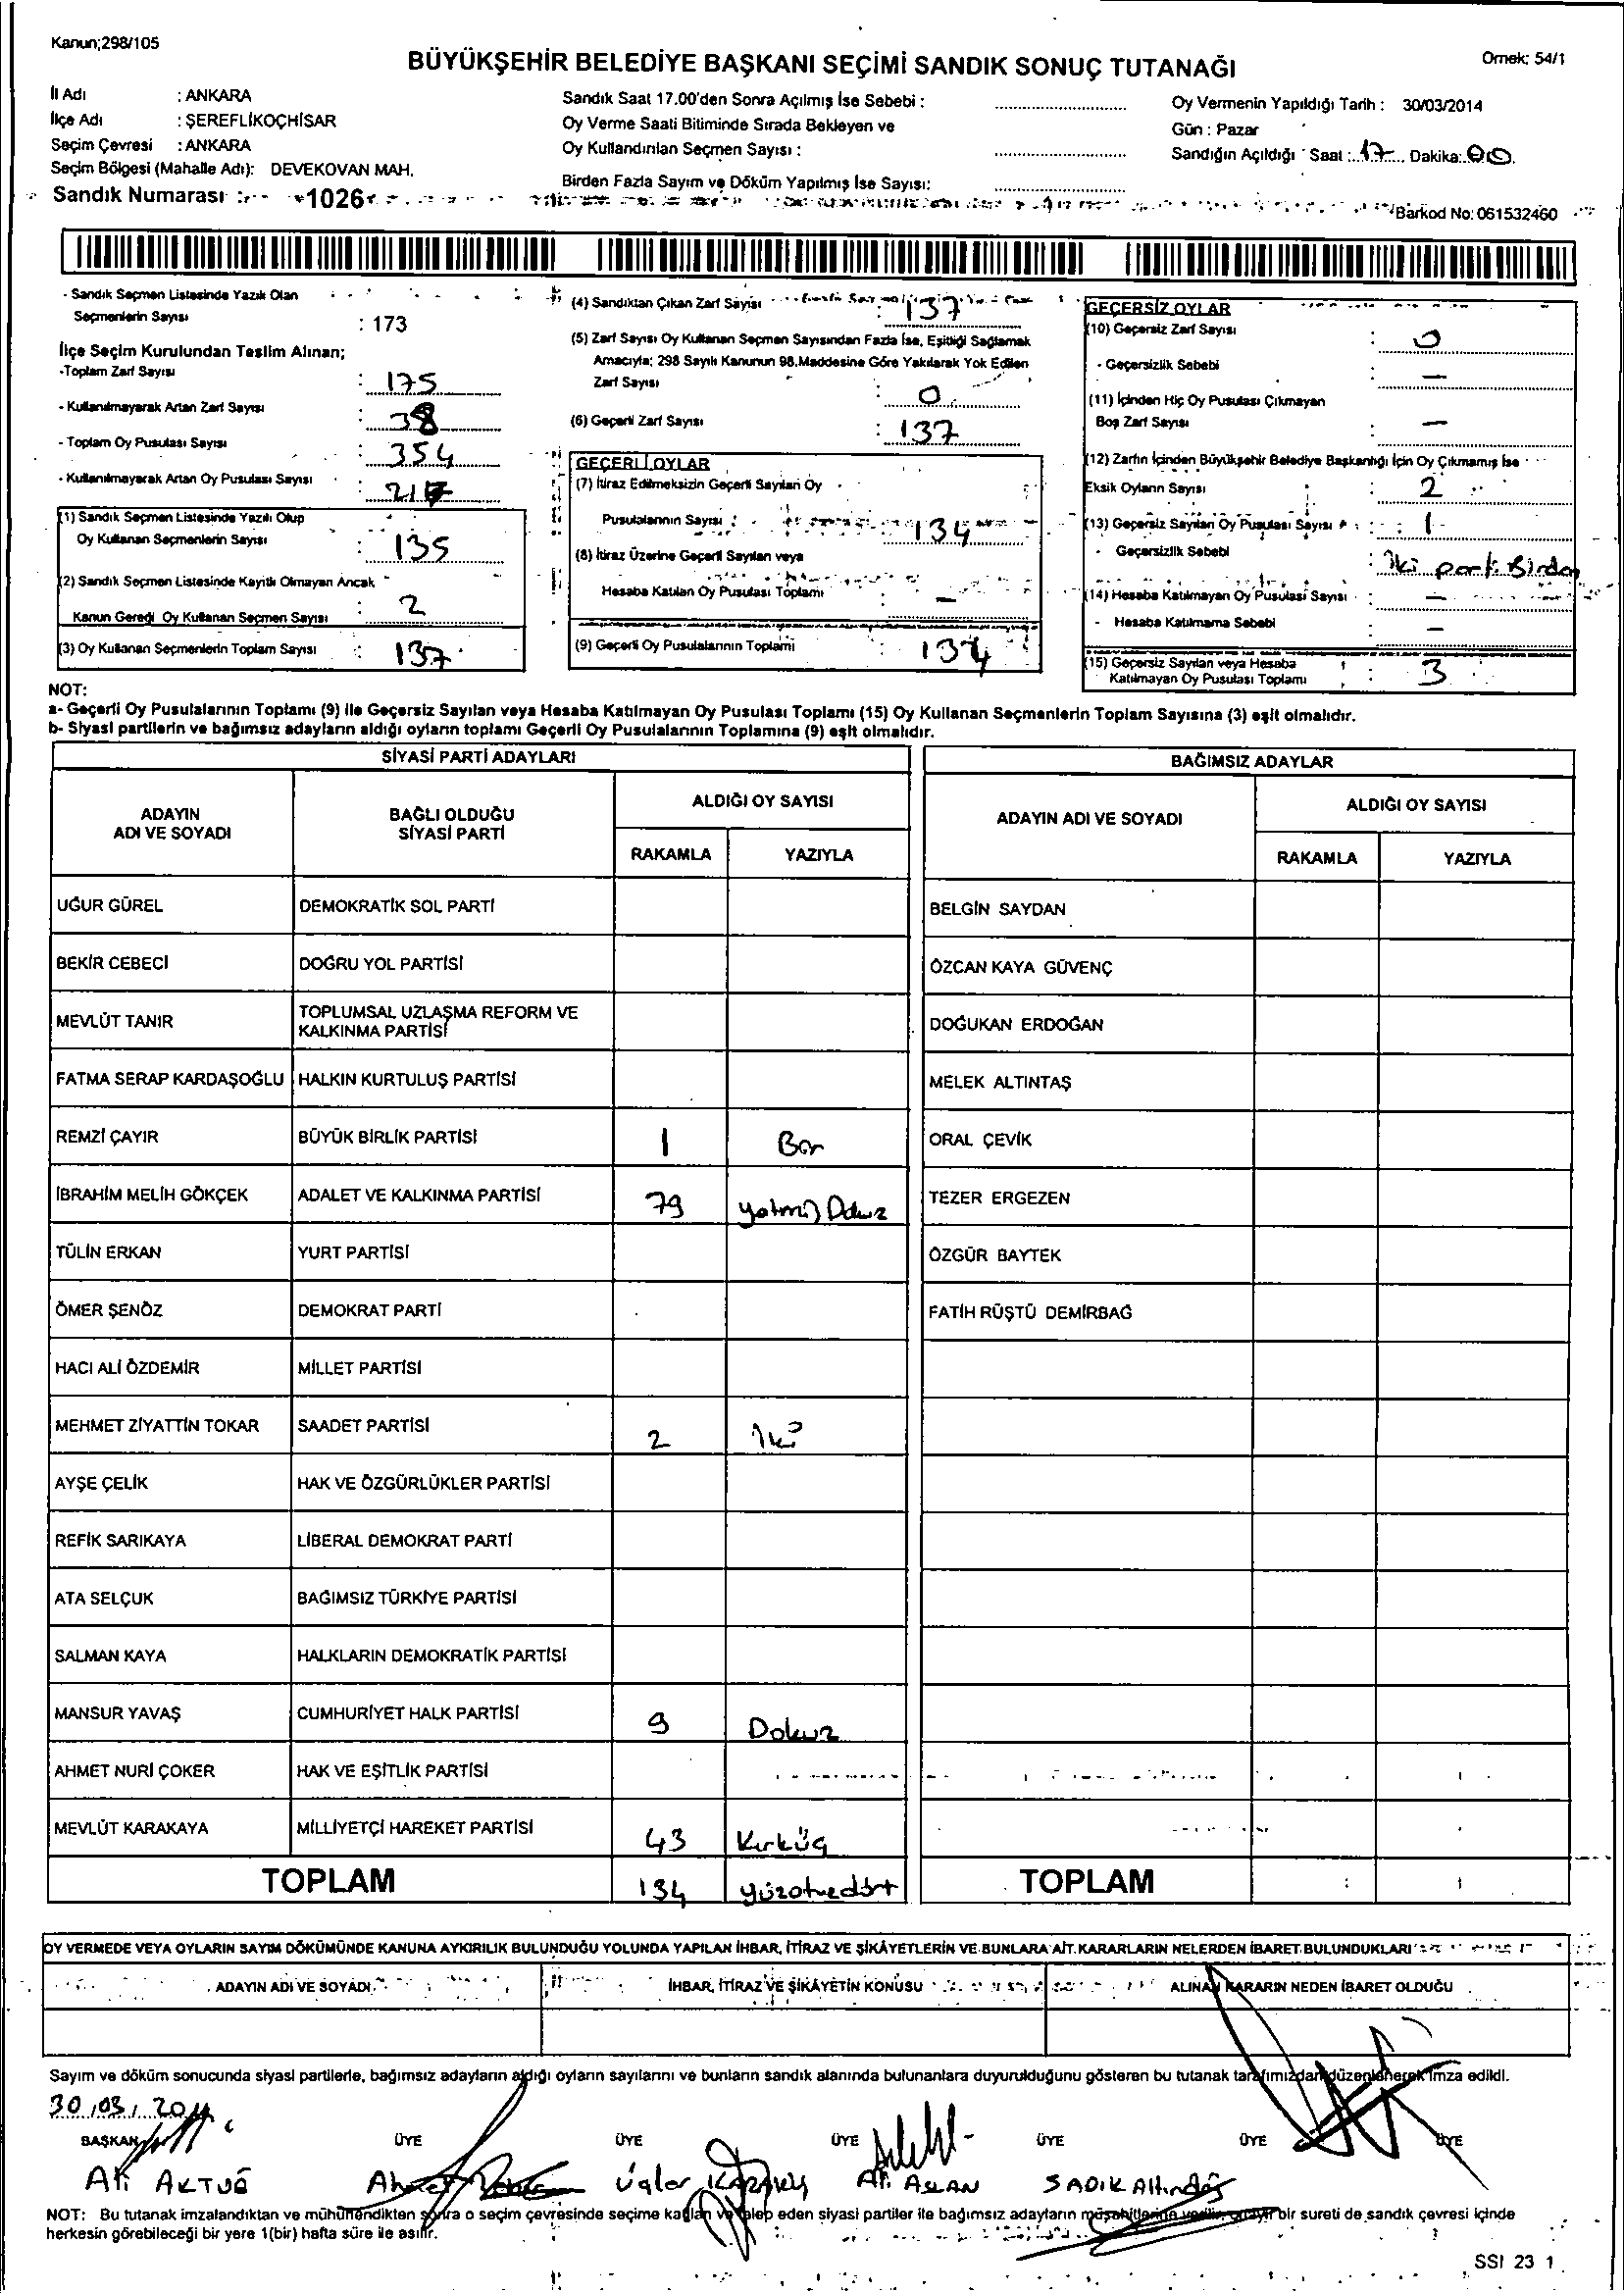 Kanun;298/105
BÜYÜKŞEHİR BELEDİYE BAŞKANI SEÇİMİ SANDIK SONUÇ TUTANAĞI
Örnek: 54/1
İl Adı : ANKARA
İlçe Adı : ŞEREFLİKOÇHİSAR
Seçim Çevresi : ANKARA
Seçim Bölgesi (Mahalle Adı): DEVEKOVAN MAH.
Sandık Numarası : 1026
Sandık Saat 17.00'den Sonra Açılmış İse Sebebi :
Oy Verme Saati Bitiminde Sırada Bekleyen ve
Oy Kullandırılan Seçmen Sayısı :
Birden Fazla Sayım ve Döküm Yapılmış İse Sayısı:
Oy Vermenin Yapıldığı Tarih : 30/03/2014
Gün : Pazar
Sandığın Açıldığı Saat : 17 Dakika: 00
Barkod No: 061532460
- Sandık Seçmen Listesinde Yazılı Olan
Seçmenlerin Sayısı : 173
İlçe Seçim Kurulundan Teslim Alınan;
-Toplam Zarf Sayısı : 175
- Kullanılmayarak Artan Zarf Sayısı : 38
- Toplam Oy Pusulası Sayısı : 354
- Kullanılmayarak Artan Oy Pusulası Sayısı : 217
(1) Sandık Seçmen Listesinde Yazılı Olup
Oy Kullanan Seçmenlerin Sayısı : 135
(2) Sandık Seçmen Listesinde Kayıtlı Olmayan Ancak
Kanun Gereği Oy Kullanan Seçmen Sayısı : 2
(3) Oy Kullanan Seçmenlerin Toplam Sayısı : 137
(4) Sandıktan Çıkan Zarf Sayısı : 137
(5) Zarf Sayısı Oy Kullanan Seçmen Sayısından Fazla İse, Eşitliği Sağlamak
Amacıyla; 298 Sayılı Kanunun 98.Maddesine Göre Yakılarak Yok Edilen
Zarf Sayısı : 0
(6) Geçerli Zarf Sayısı : 137
GEÇERLİ OYLAR
(7) İtiraz Edilmeksizin Geçerli Sayılan Oy
Pusulalarının Sayısı : 134
(8) İtiraz Üzerine Geçerli Sayılan veya
Hesaba Katılan Oy Pusulası Toplamı : -
(9) Geçerli Oy Pusulalarının Toplamı : 134
GEÇERSİZ OYLAR
(10) Geçersiz Zarf Sayısı : 0
- Geçersizlik Sebebi : -
(11) İçinden Hiç Oy Pusulası Çıkmayan
Boş Zarf Sayısı : -
(12) Zarfın İçinden Büyükşehir Belediye Başkanlığı İçin Oy Çıkmamış İse
Eksik Oyların Sayısı : 2
(13) Geçersiz Sayılan Oy Pusulası Sayısı : 1
- Geçersizlik Sebebi : iki parti Birden
(14) Hesaba Katılmayan Oy Pusulası Sayısı : -
- Hesaba Katılmama Sebebi : -
(15) Geçersiz Sayılan veya Hesaba
Katılmayan Oy Pusulası Toplamı : 3
NOT:
a- Geçerli Oy Pusulalarının Toplamı (9) ile Geçersiz Sayılan veya Hesaba Katılmayan Oy Pusulası Toplamı (15) Oy Kullanan Seçmenlerin Toplam Sayısına (3) eşit olmalıdır.
b- Siyasi partilerin ve bağımsız adayların aldığı oyların toplamı Geçerli Oy Pusulalarının Toplamına (9) eşit olmalıdır.
SİYASİ PARTİ ADAYLARI
ADAYIN ADI VE SOYADI
BAĞLI OLDUĞU SİYASİ PARTİ
ALDIĞI OY SAYISI
RAKAMLA YAZIYLA
UĞUR GÜREL DEMOKRATİK SOL PARTİ
BEKİR CEBECİ DOĞRU YOL PARTİSİ
MEVLÜT TANIR TOPLUMSAL UZLAŞMA REFORM VE
KALKINMA PARTİSİ
FATMA SERAP KARDAŞOĞLU HALKIN KURTULUŞ PARTİSİ
REMZİ ÇAYIR BÜYÜK BİRLİK PARTİSİ 1 Bir
İBRAHİM MELİH GÖKÇEK ADALET VE KALKINMA PARTİSİ 79 yetmiş Dokuz
TÜLİN ERKAN YURT PARTİSİ
ÖMER ŞENÖZ DEMOKRAT PARTİ
HACI ALİ ÖZDEMİR MİLLET PARTİSİ
MEHMET ZİYATTİN TOKAR SAADET PARTİSİ 2 iki
AYŞE ÇELİK HAK VE ÖZGÜRLÜKLER PARTİSİ
REFİK SARIKAYA LİBERAL DEMOKRAT PARTİ
ATA SELÇUK BAĞIMSIZ TÜRKİYE PARTİSİ
SALMAN KAYA HALKLARIN DEMOKRATİK PARTİSİ
MANSUR YAVAŞ CUMHURİYET HALK PARTİSİ 9 Dokuz
AHMET NURİ ÇOKER HAK VE EŞİTLİK PARTİSİ
MEVLÜT KARAKAYA MİLLİYETÇİ HAREKET PARTİSİ 43 Kırküç
TOPLAM 134 yüzotuzdört
BAĞIMSIZ ADAYLAR
ADAYIN ADI VE SOYADI
ALDIĞI OY SAYISI
RAKAMLA YAZIYLA
BELGİN SAYDAN
ÖZCAN KAYA GÜVENÇ
DOĞUKAN ERDOĞAN
MELEK ALTINTAŞ
ORAL ÇEVİK
TEZER ERGEZEN
ÖZGÜR BAYTEK
FATİH RÜŞTÜ DEMİRBAĞ
TOPLAM
OY VERMEDE VEYA OYLARIN SAYIM DÖKÜMÜNDE KANUNA AYKIRILIK BULUNDUĞU YOLUNDA YAPILAN İHBAR, İTİRAZ VE ŞİKÂYETLERİN VE BUNLARA AİT KARARLARIN NELERDEN İBARET BULUNDUKLARI
ADAYIN ADI VE SOYADI İHBAR, İTİRAZ VE ŞİKÂYETİN KONUSU ALINAN KARARIN NEDEN İBARET OLDUĞU
Sayım ve döküm sonucunda siyasi partilerle, bağımsız adayların aldığı oyların sayılarını ve bunların sandık alanında bulunanlara duyurulduğunu gösteren bu tutanak tarafımızdan düzenlenerek imza edildi.
30/03/2014
BAŞKAN ÜYE ÜYE ÜYE ÜYE ÜYE ÜYE
Ali AKTUĞ Ahmet Uğlar Ali ASLAN SADIK Altındağ
NOT: Bu tutanak imzalandıktan ve mühürlendikten sonra o seçim çevresinde seçime katılan ve talep eden siyasi partiler ile bağımsız adayların müşahitlerine verilir, onaylı bir sureti de sandık çevresi içinde
herkesin görebileceği bir yere 1(bir) hafta süre ile asılır.
SSI 23 1